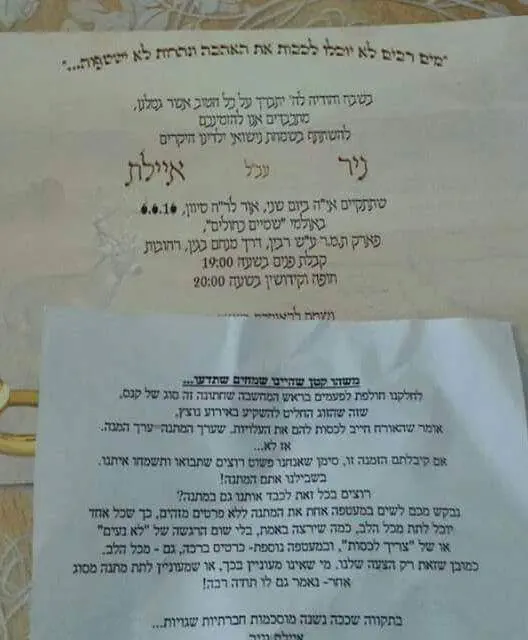 "מים רבים לא יוכלו לכבות את האהבה ונהרות לא ישטפוה..."
בשבח והודיה לה' יתברך על כל הטוב אשר גמלנו,
מתכבדים אנו להזמינכם
להשתתף בשמחת נישואי ילדינו היקרים
ניר עב"ל איילת
שתתקיים אי"ה ביום שני, אור לר"ח סיוון, 6.6.16
באולמי "שמיים כחולים",
פארק ת.מ.ר ע"ש רבין, דרך מנחם בגין, רחובות
קבלת פנים בשעה 19:00
חופה וקידושין בשעה 20:00
משהו קטן שהיינו שמחים שתדעו...
לחלקנו חולפת לפעמים בראש המחשבה שחתונה זה סוג של קנס,
שזה שהזוג החליט להשקיע באירוע נוצץ,
אומר שהאורח חייב לכסות להם את העלויות. שערך המתנה=ערך המנה.
אז לא...
אם קיבלתם הזמנה זו, סימן שאנחנו פשוט רוצים שתבואו ותשמחו איתנו.
בשבילנו אתם המתנה!
רוצים בכל זאת לכבד אותנו גם במתנה?
נבקש מכם לשים במעטפה אחת את המתנה ללא פרטים מזהים, כך שכל אחד
יוכל לתת מכל הלב, כמה שירצה באמת, בלי שום הרגשה של "לא נעים"
או של "צריך לכסות", ובמעטפה נוספת- כרטיס ברכה, גם - מכל הלב.
כמובן שזאת רק הצעה שלנו. מי שאינו מעוניין בכך, או שמעוניין לתת מתנה מסוג
אחר- נאמר גם לו תודה רבה!
בתקווה שככה נשנה מוסכמות חברתיות שגויות...
איילת וניר